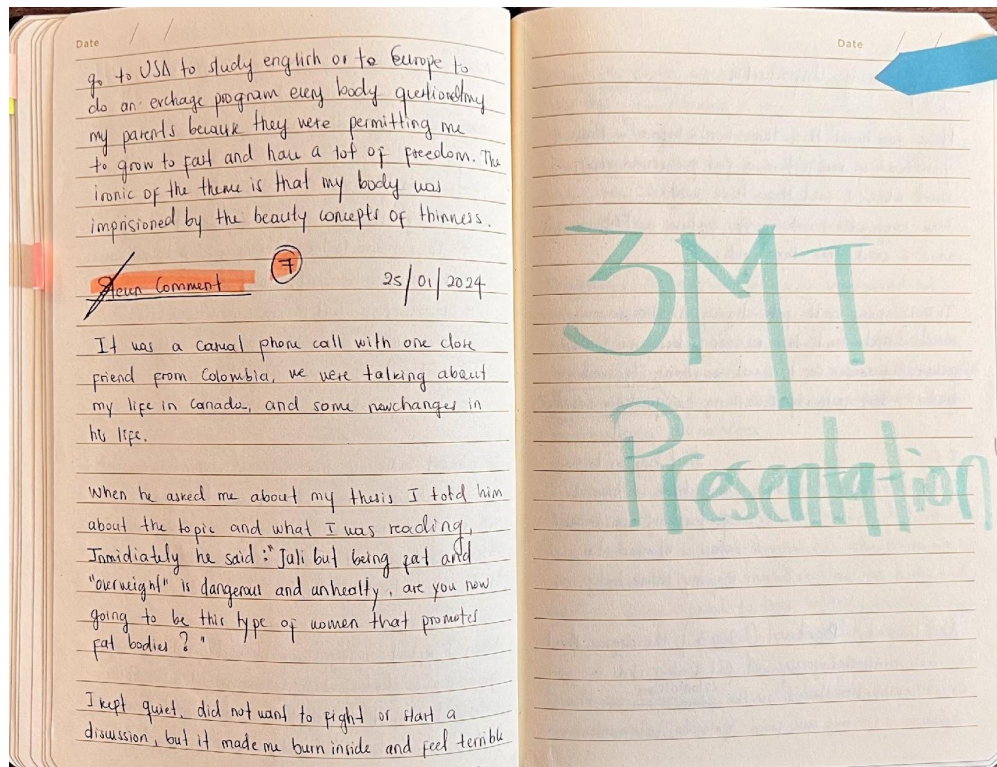 Date / /
go to USA to study english or to Europe to
do an exchage program every body questioned my
my parents because they were permitting me
to grow to fast and have a lot of freedom. The
ironic of the theme is that my body was
imprisioned by the beauty concepts of thinness.
Comment 7 25/01/2024
It was a casual phone call with one close
friend from Colombia, we were talking about
my life in Canada, and some new changes in
his life.
When he asked me about my thesis I told him
about the topic and what I was reading,
Inmidiately he said: "Juli but being fat and
"overweight" is dangerous and unhealty, are you now
going to be this type of women that promotes
fat bodies? "
I kept quiet, did not want to fight or start a
discussion, but it made me burn inside and feel terrible
Date / /
3MT
Presentation